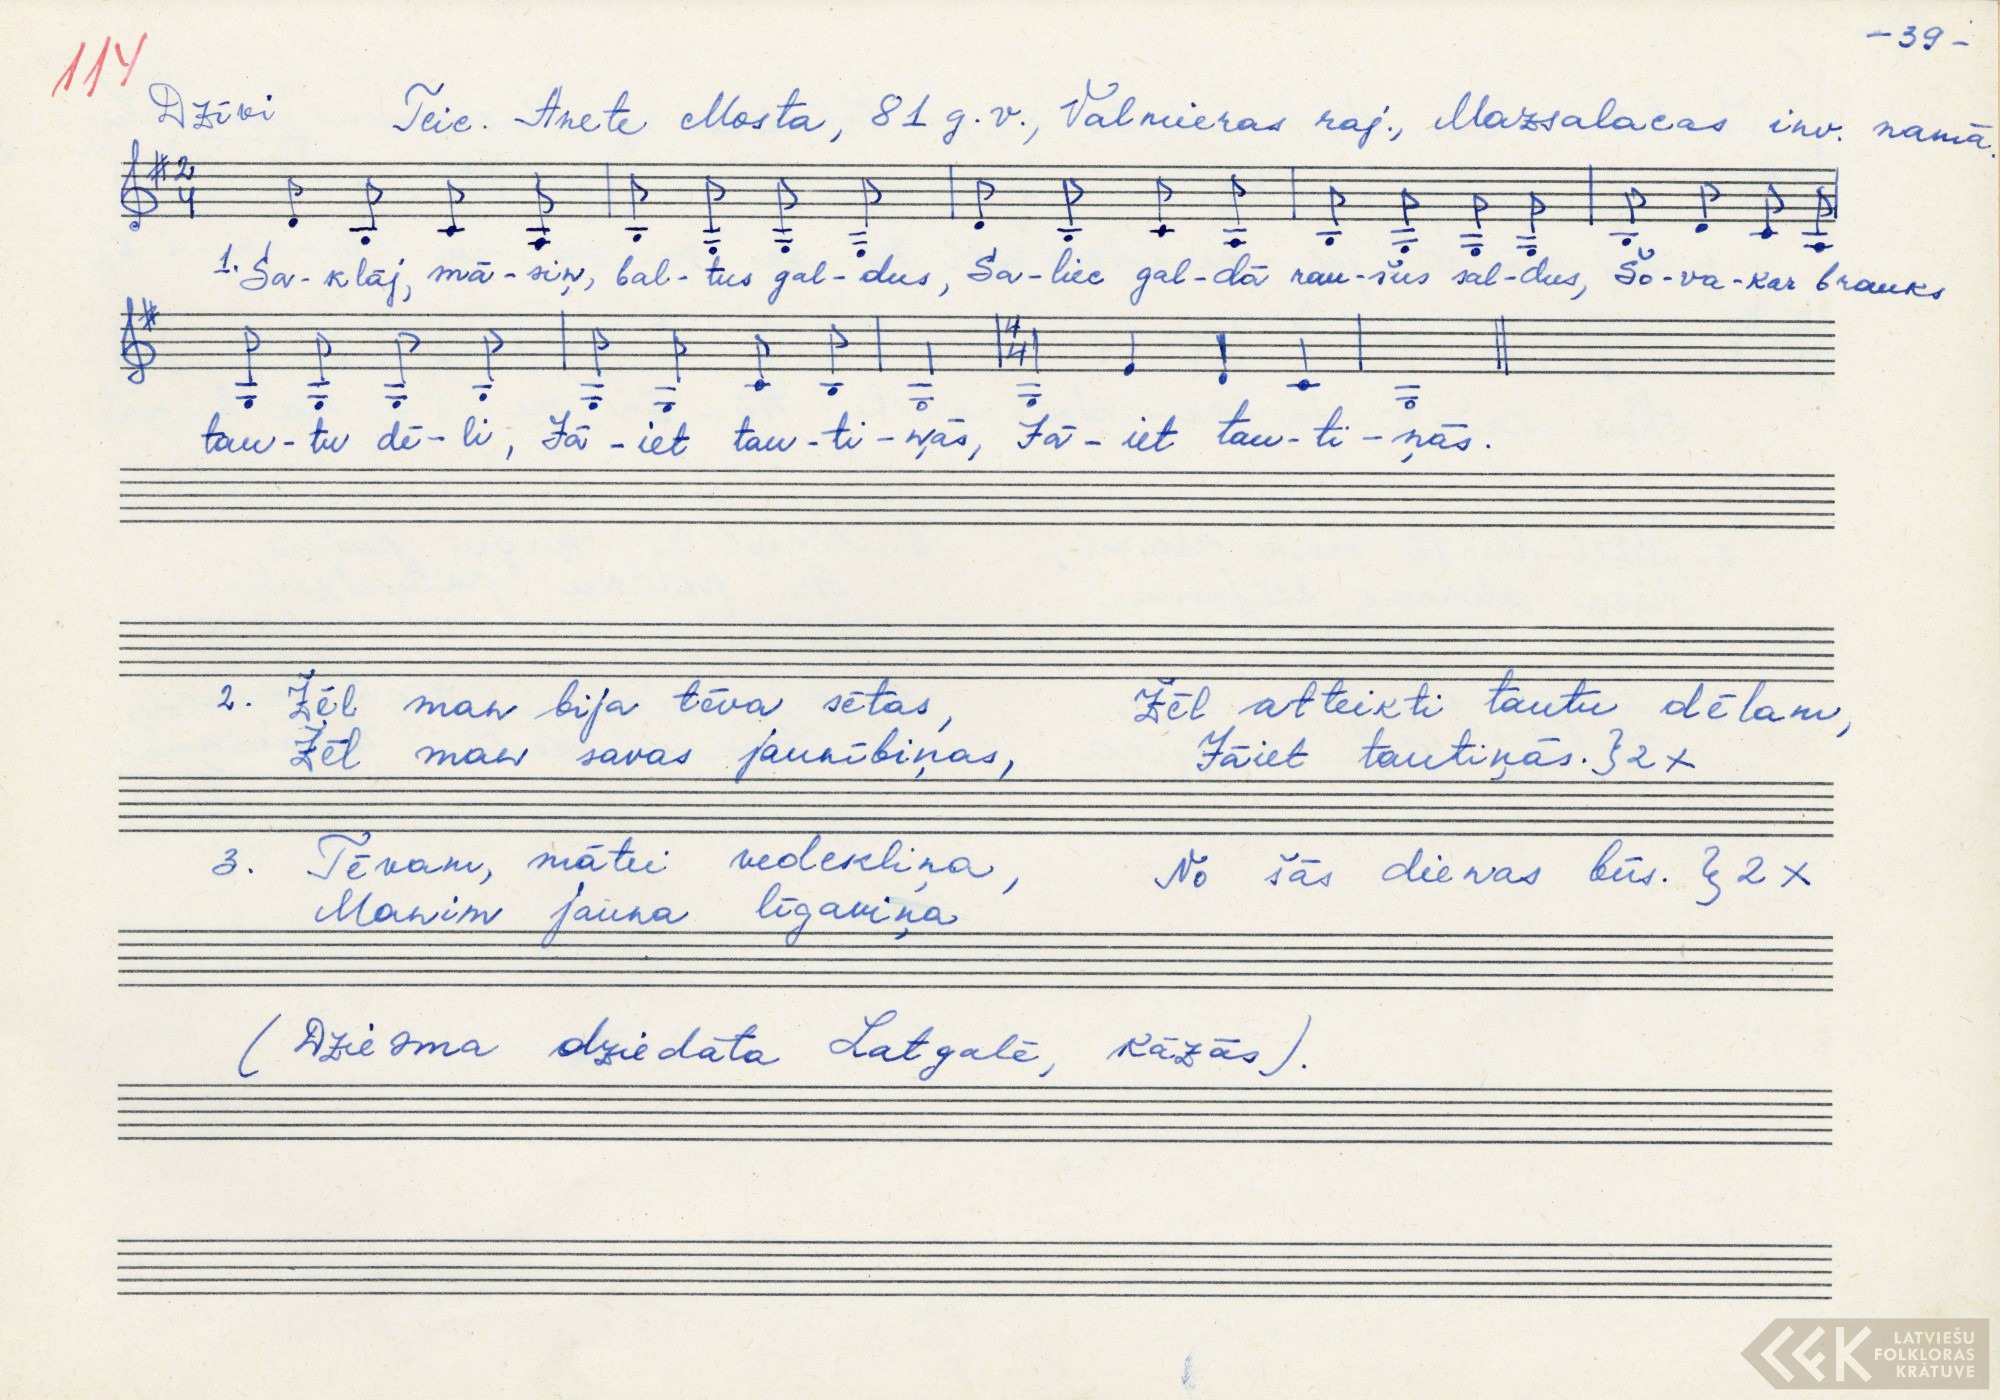 114
- 39 -
Dzīvi Teic. Anete Mosta, 81 g. v., Valmieras raj., Mazsalacas inv. namā.
2
4
1. Sa-klāj, mā-siņ, bal-tus gal-dus, Sa-liec gal-dā rau-šus sal-dus, Šo-va-kar brauks
4
4
tau-tu dē-li, Jā-iet tau-ti-ņās, Jā-iet tau-ti-ņās.
2. Žēl man bija tēva sētas, Žēl atteikti tautu dēlam,
Žēl man savas jaunībiņas, Jāiet tautiņās. } 2 x
3. Tēvam, mātei vedekliņa, No šās dienas būs. } 2 x
Manim jauna līgaviņa
(Dziesma dziedāta Latgalē, kāzās).
LATVIEŠU
FOLKLORAS
KRĀTUVE